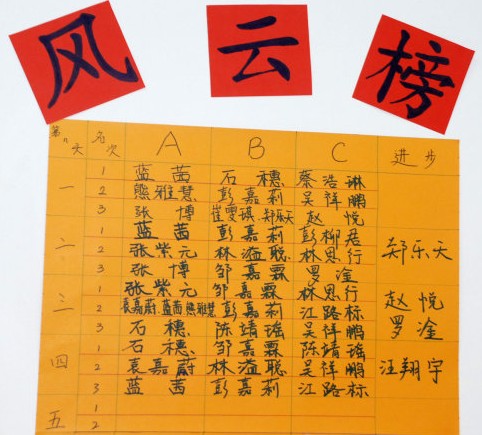 风 云 榜
第n天 名次 A B C 进步
一 1 蓝茜 石穗 蔡浩琳
2 熊雅慧 彭嘉莉 吴祥鹏
3 张博 崔雯琪、郑乐天 赵悦
二 1 蓝茜 彭嘉莉 彭柳君 郑乐天
2 张紫元 林溢聪 林思行
3 张博 邹嘉霖 罗淦
三 1 张紫元 邹嘉霖 林思行 赵悦
2 袁嘉蔚、蓝茜、熊雅慧 彭嘉莉 江路标 罗淦
3 石穗 陈靖瑶 吴祥鹏
四 1 石穗 邹嘉霖 陈靖瑶 汪翔宇
2 袁嘉蔚 林溢聪 吴祥鹏
3 蓝茜 彭嘉莉 江路标
五 1
2